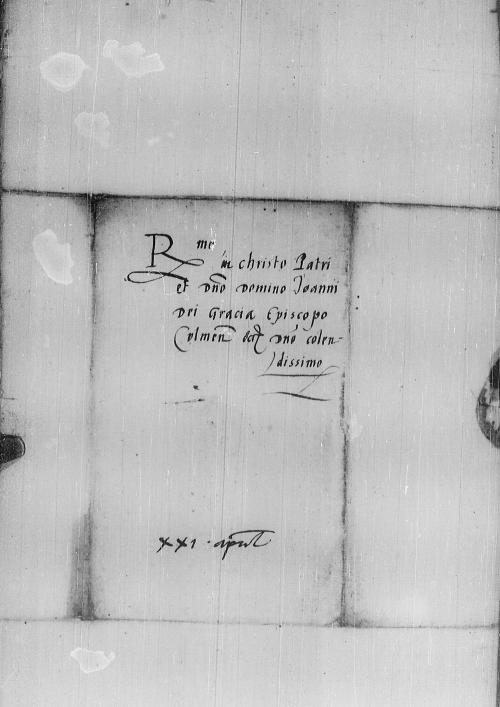 Rme
in christo Patri
et dno Domino Joanni
Dei Gracia Episcopo
Culmen etc dno colen-
dissimo
xxi aprilis